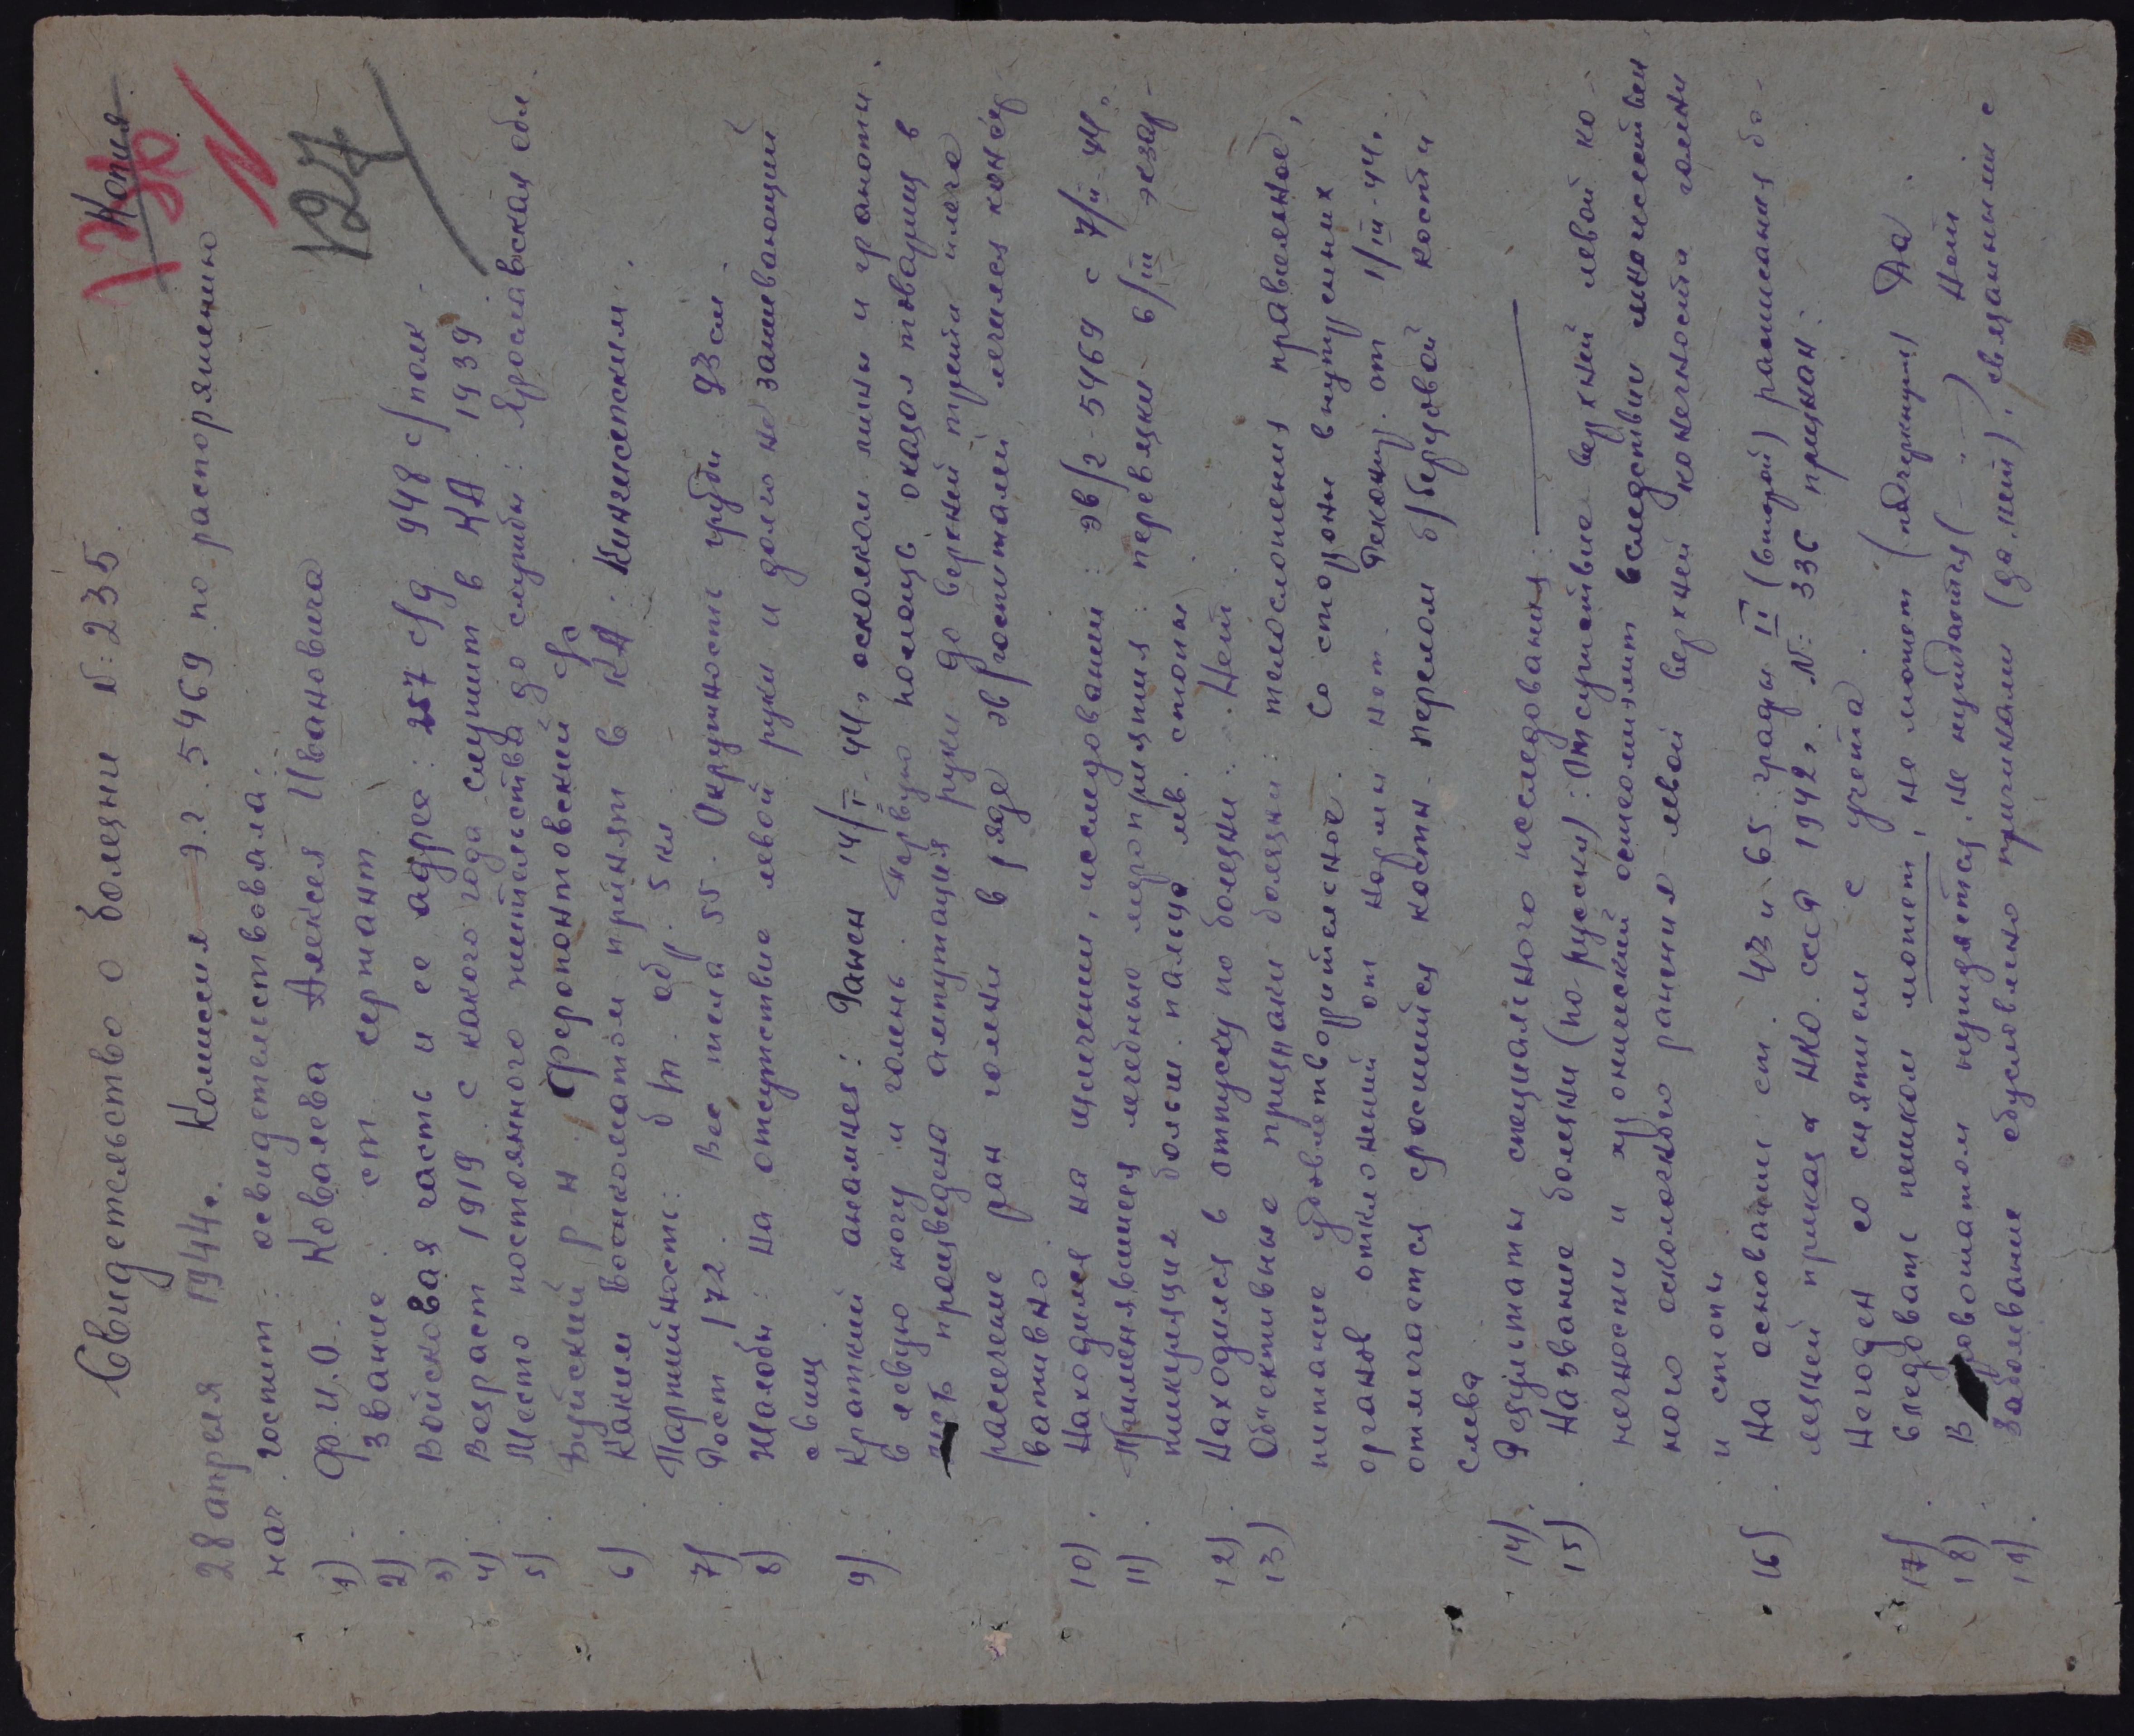 Копия
N
127
Свидетельство о болезни N: 235
28 апреля 1944 г. Комиссия э.г. 5469 по распоряжению
нач. госпит. освидетельствовала.
1). Ф.И.О. Ковалева Алексея Ивановича
2). Звание. ст сержант
3) Войсковая часть и ее адрес: 257 с/д 948 с/полк.
4). Возраст 1919. с какого года служит в КА: 1939.
5). Место постоянного жительства до службы: Ярославская обл.
Буйский р-н. Феропонтовский с/с
6). Каким военкоматом принят в КА: Кингисепским.
Партийность: б/п. обр. 5 кл
7). Рост 172. Вес тела 55. Окружность груди 93 см.
8) Жалобы: на отсутствие левой руки и долго не заживающий
свищ.
9). Краткий анамнез: Ранен 14/II-44г осколком мины и гранаты
в левую ногу и голень. Первую помощь оказал товарищ в
произведена ампутация руки до верхней трети плеча
рассечение ран голени. в ряде эв/госпиталей лечился консер
вативно.
10). Находился на излечении, исследовании: эв/г-5469 с 7/II-44г.
11). Применявшиеся лечебные мероприятия: перевязки 6/III экзар-
тикуляция больш. пальца лев. стопы
12). Находился в отпуску по болезни. Нет.
13) Объективные признаки болезни: телосложения правильное,
питание удовлетворительное. Со стороны внутренних
органов отклонений от нормы нет. Рекониц. от 1/III-44г.
отмечается сросшийся костн. перелом б/берцовой кости
слева
14). Результаты специального исследования:
15). Название болезни (по русски): Отсутствие верхней левой ко-
нечности и хронический остеомиэлит вследствии множествен
ного осколочного ранения левой верхней конечности голени
и стопы
16). На основании ст. 43 и 65. графы II (второй) расписания бо-
лезней приказа НКО. ссср 1942г. N: 336 признан:
Негоден со снятием с учета.
17). Следовать пешком может, не может (подчеркнуть) Да.
18) В провожатом нуждается, не нуждается (-"-) Нет
19). Заболевание обусловлено причинами (да, нет), связанными с